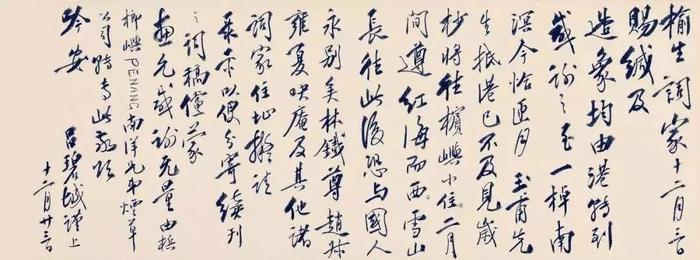 榆生詞家十二月三日
賜緘及
造象均由港轉到
感謝之至一棹南
溟今恰匝月 玉甫先
生抵港已不及見歲
杪將往檳嶼小住。二月
間遵紅海而西。雪山
長往此後恐与國人
永別矣林鐵尊趙叔
雍夏吷庵及其他諸
詞家住址擬請
彔示以便分寄續刊
之詞稿儻蒙
惠允感謝无量由梹
榔嶼PENANG南洋兄弟煙草
公司轉專此敬頌
吟安
呂碧城謹上
十二月廿三日